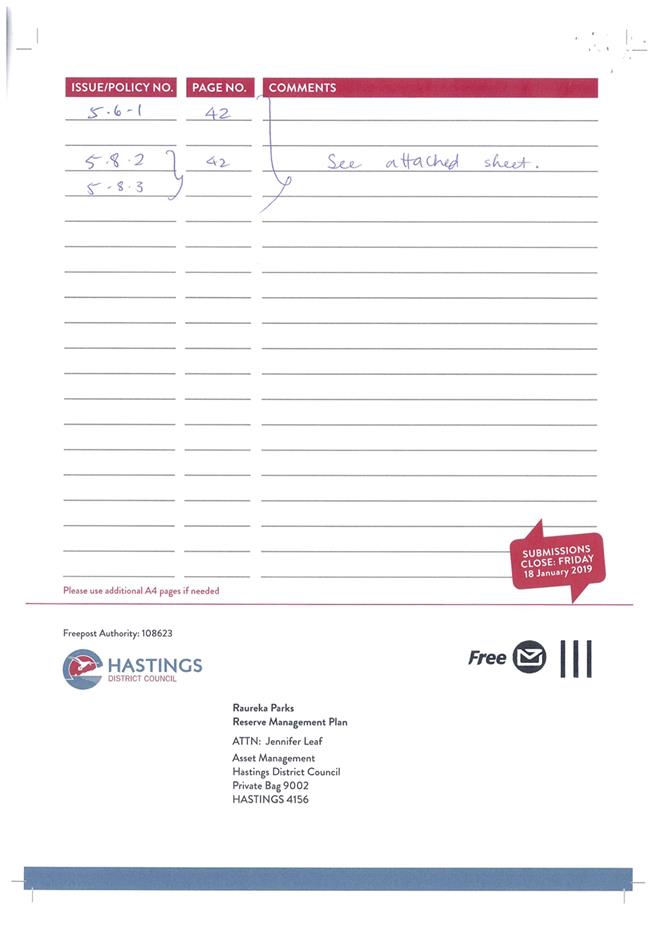 ISSUE/POLICY NO. PAGE NO. COMMENTS
5.6-1 42
5.8.2 42 See attached sheet.
5-8.3
SUBMISSIONS
CLOSE: FRIDAY
18 January 2019
Please use additional A4 pages if needed
Freepost Authority: 108623
HASTINGS
DISTRICT COUNCIL
Free
Raureka Parks
Reserve Management Plan
ATTN: Jennifer Leaf
Asset Management
Hastings District Council
Private Bag 9002
HASTINGS 4156